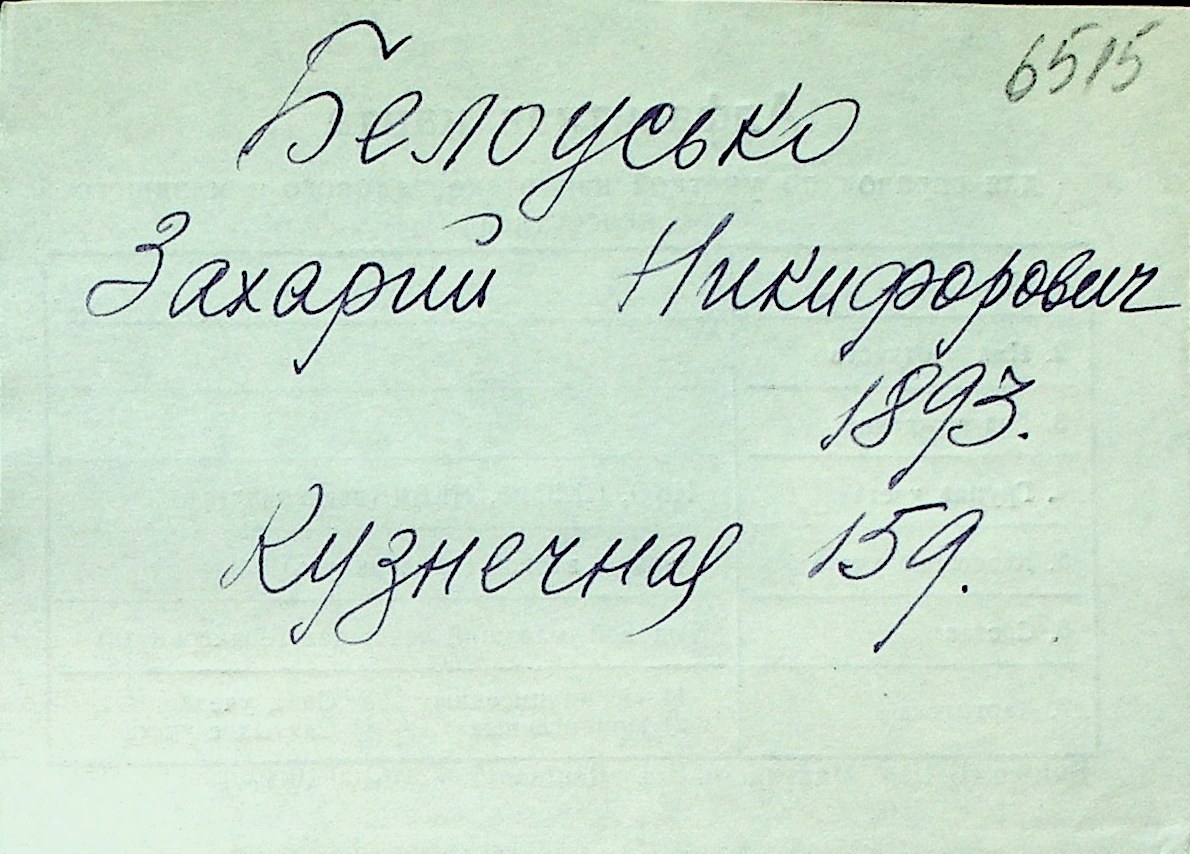 6515
Белоусько
Захарий Никифорович
1893.
Кузнечная 159.